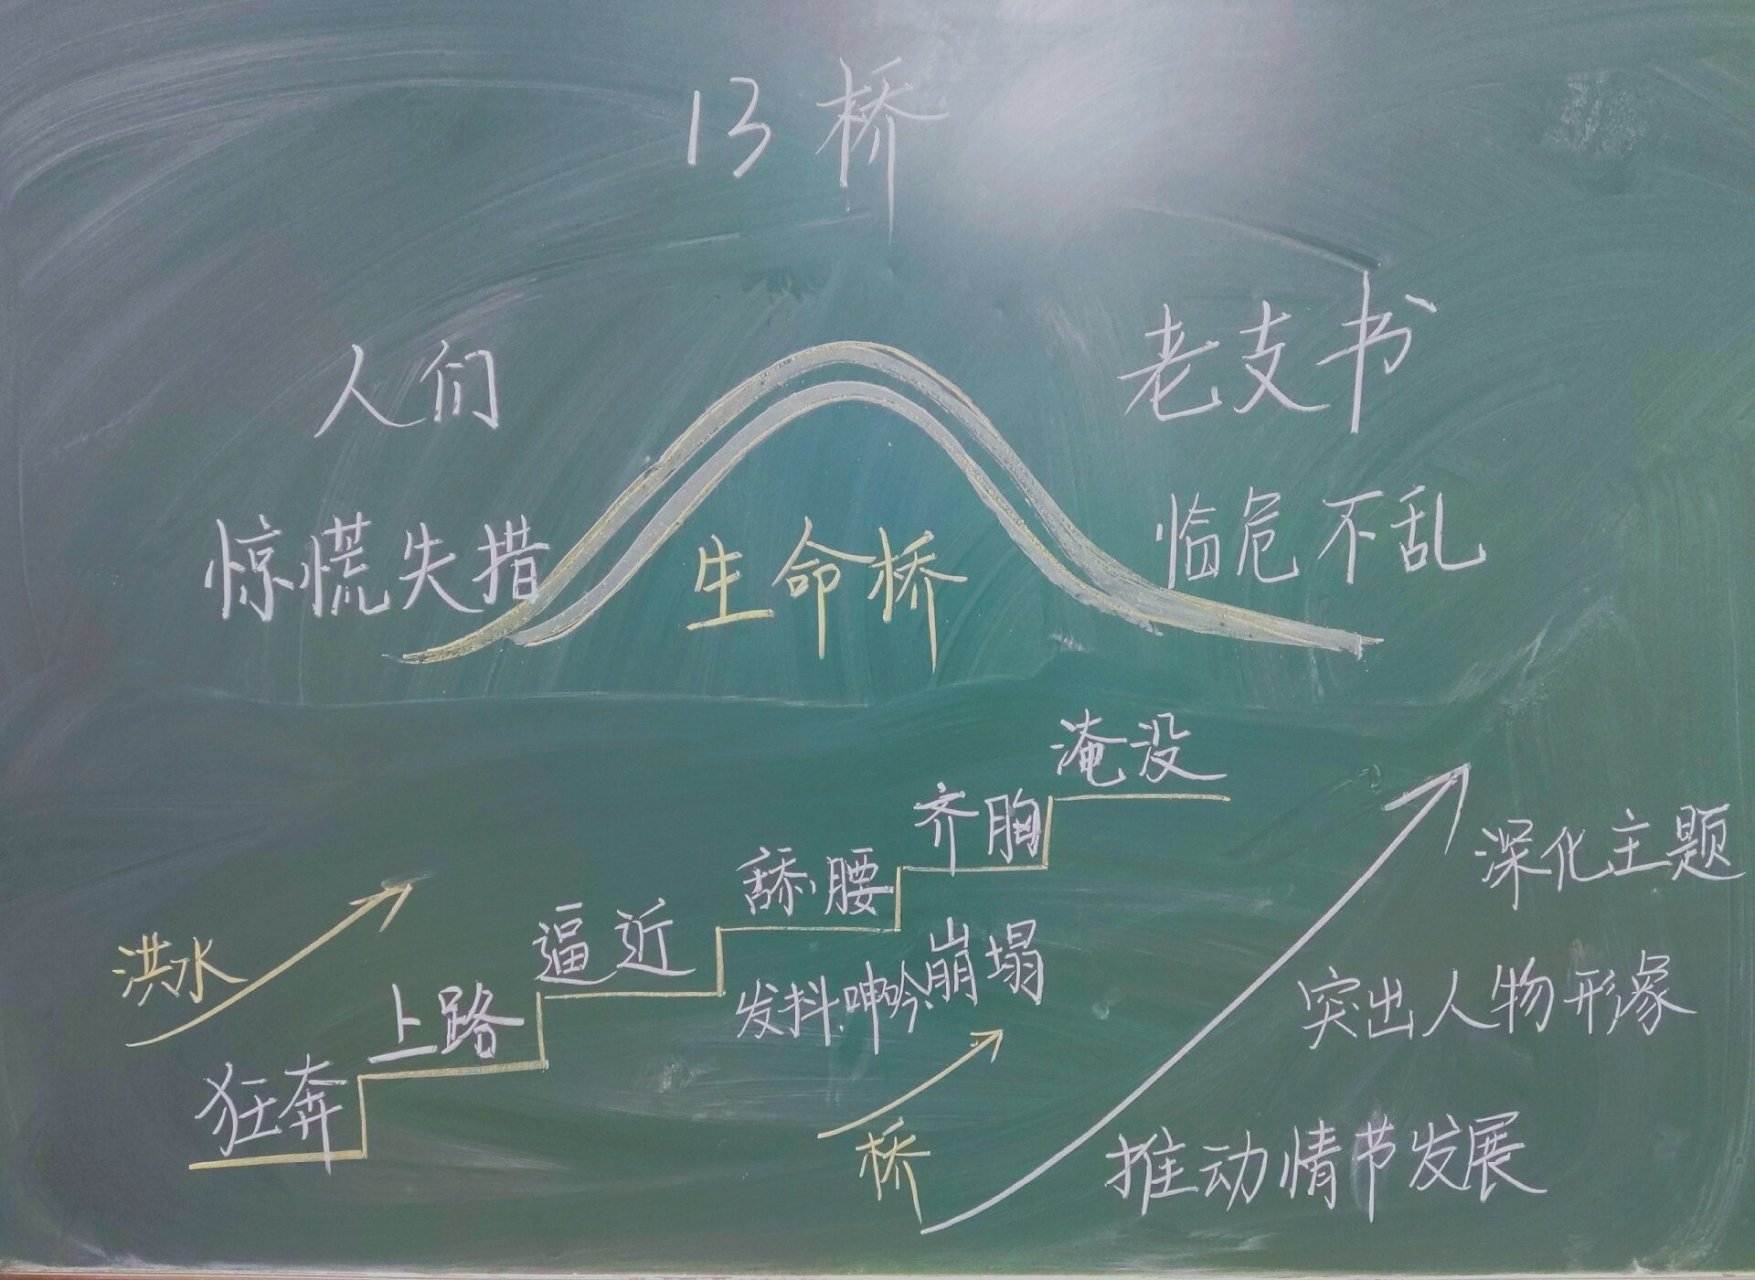 13 桥
人们
老支书
惊慌失措
生命桥
临危不乱
淹没
齐胸
舔腰
逼近
上路
狂奔
洪水
发抖.呻吟.崩塌
桥
深化主题
突出人物形象
推动情节发展